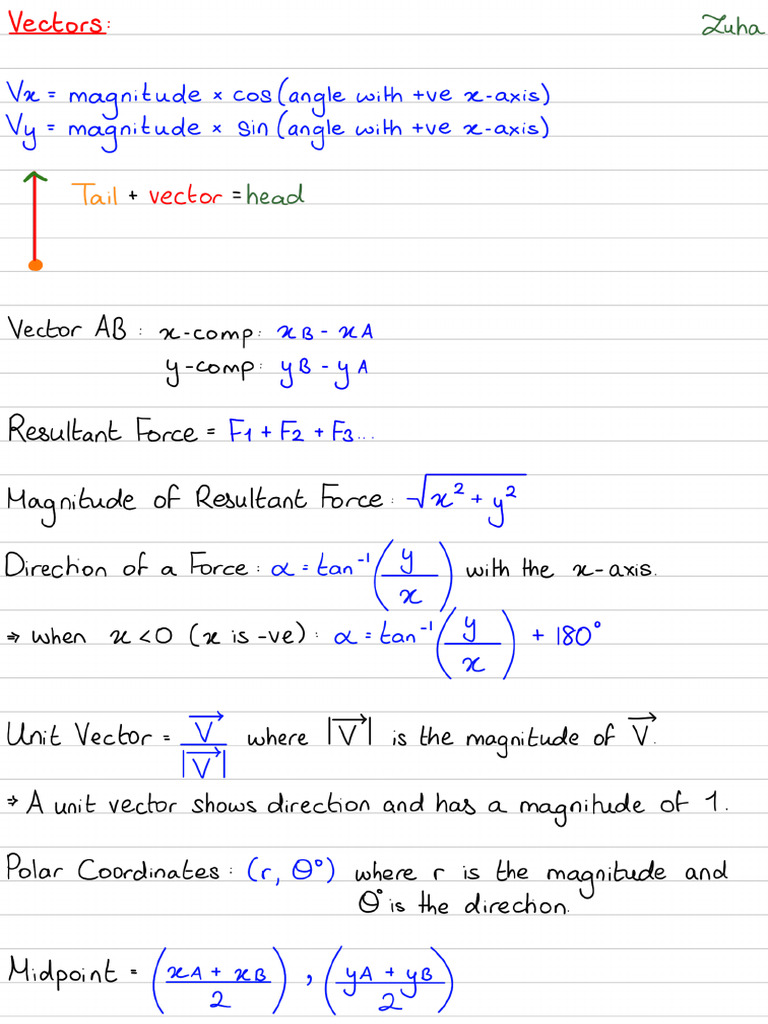 Vectors: Zuha
Vx = magnitude × cos(angle with +ve x-axis)
Vy = magnitude × sin(angle with +ve x-axis)
Tail + vector = head
Vector AB: x-comp: xB - xA
y-comp: yB - yA
Resultant Force = F1 + F2 + F3...
Magnitude of Resultant Force: √(x² + y²)
Direction of a Force: α = tan⁻¹(y/x) with the x-axis.
⇒ when x<0 (x is -ve): α = tan⁻¹(y/x) + 180°
Unit Vector = V⃗/|V⃗| where |V⃗| is the magnitude of V⃗.
⇒ A unit vector shows direction and has a magnitude of 1.
Polar Coordinates: (r, θ°) where r is the magnitude and
θ° is the direction.
Midpoint = (xA + xB / 2), (yA + yB / 2)